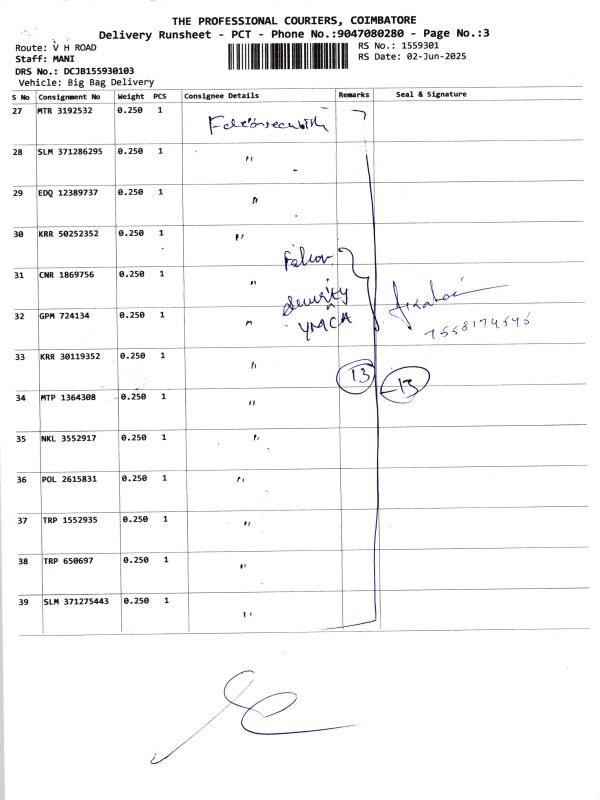 THE PROFESSIONAL COURIERS, COIMBATORE
Delivery Runsheet - PCT - Phone No.:9047080280 - Page No.:3
Route: V H ROAD
RS No.: 1559301
Staff: MANI
RS Date: 02-Jun-2025
DRS No.: DCJB155930103
Vehicle: Big Bag Delivery
S No Consignment No Weight PCS Consignee Details Remarks Seal & Signature
27 MTR 3192532 0.250 1
28 SLM 371286295 0.250 1 "
29 EDQ 12389737 0.250 1 "
30 KRR 50252352 0.250 1 "
Falcon
31 CNR 1869756 0.250 1 "
Security
32 GPM 724134 0.250 1 "
YMCA
7558174545
33 KRR 30119352 0.250 1 "
13 13
34 MTP 1364308 0.250 1 "
35 NKL 3552917 0.250 1 "
36 POL 2615831 0.250 1 "
37 TRP 1552935 0.250 1 "
38 TRP 650697 0.250 1 "
39 SLM 371275443 0.250 1 "